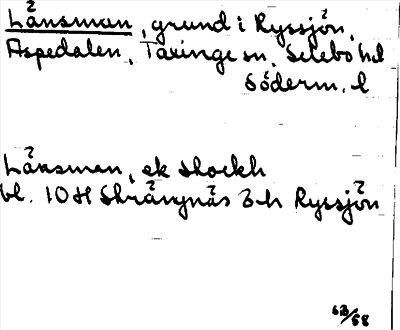 Länsman, grund i Ryssjön,
Aspedalen, Taxinge sn, Selebo hd
Söderm. l
Länsman, ek Stockh
bl. 10H Strängnäs 3h Ryssjön